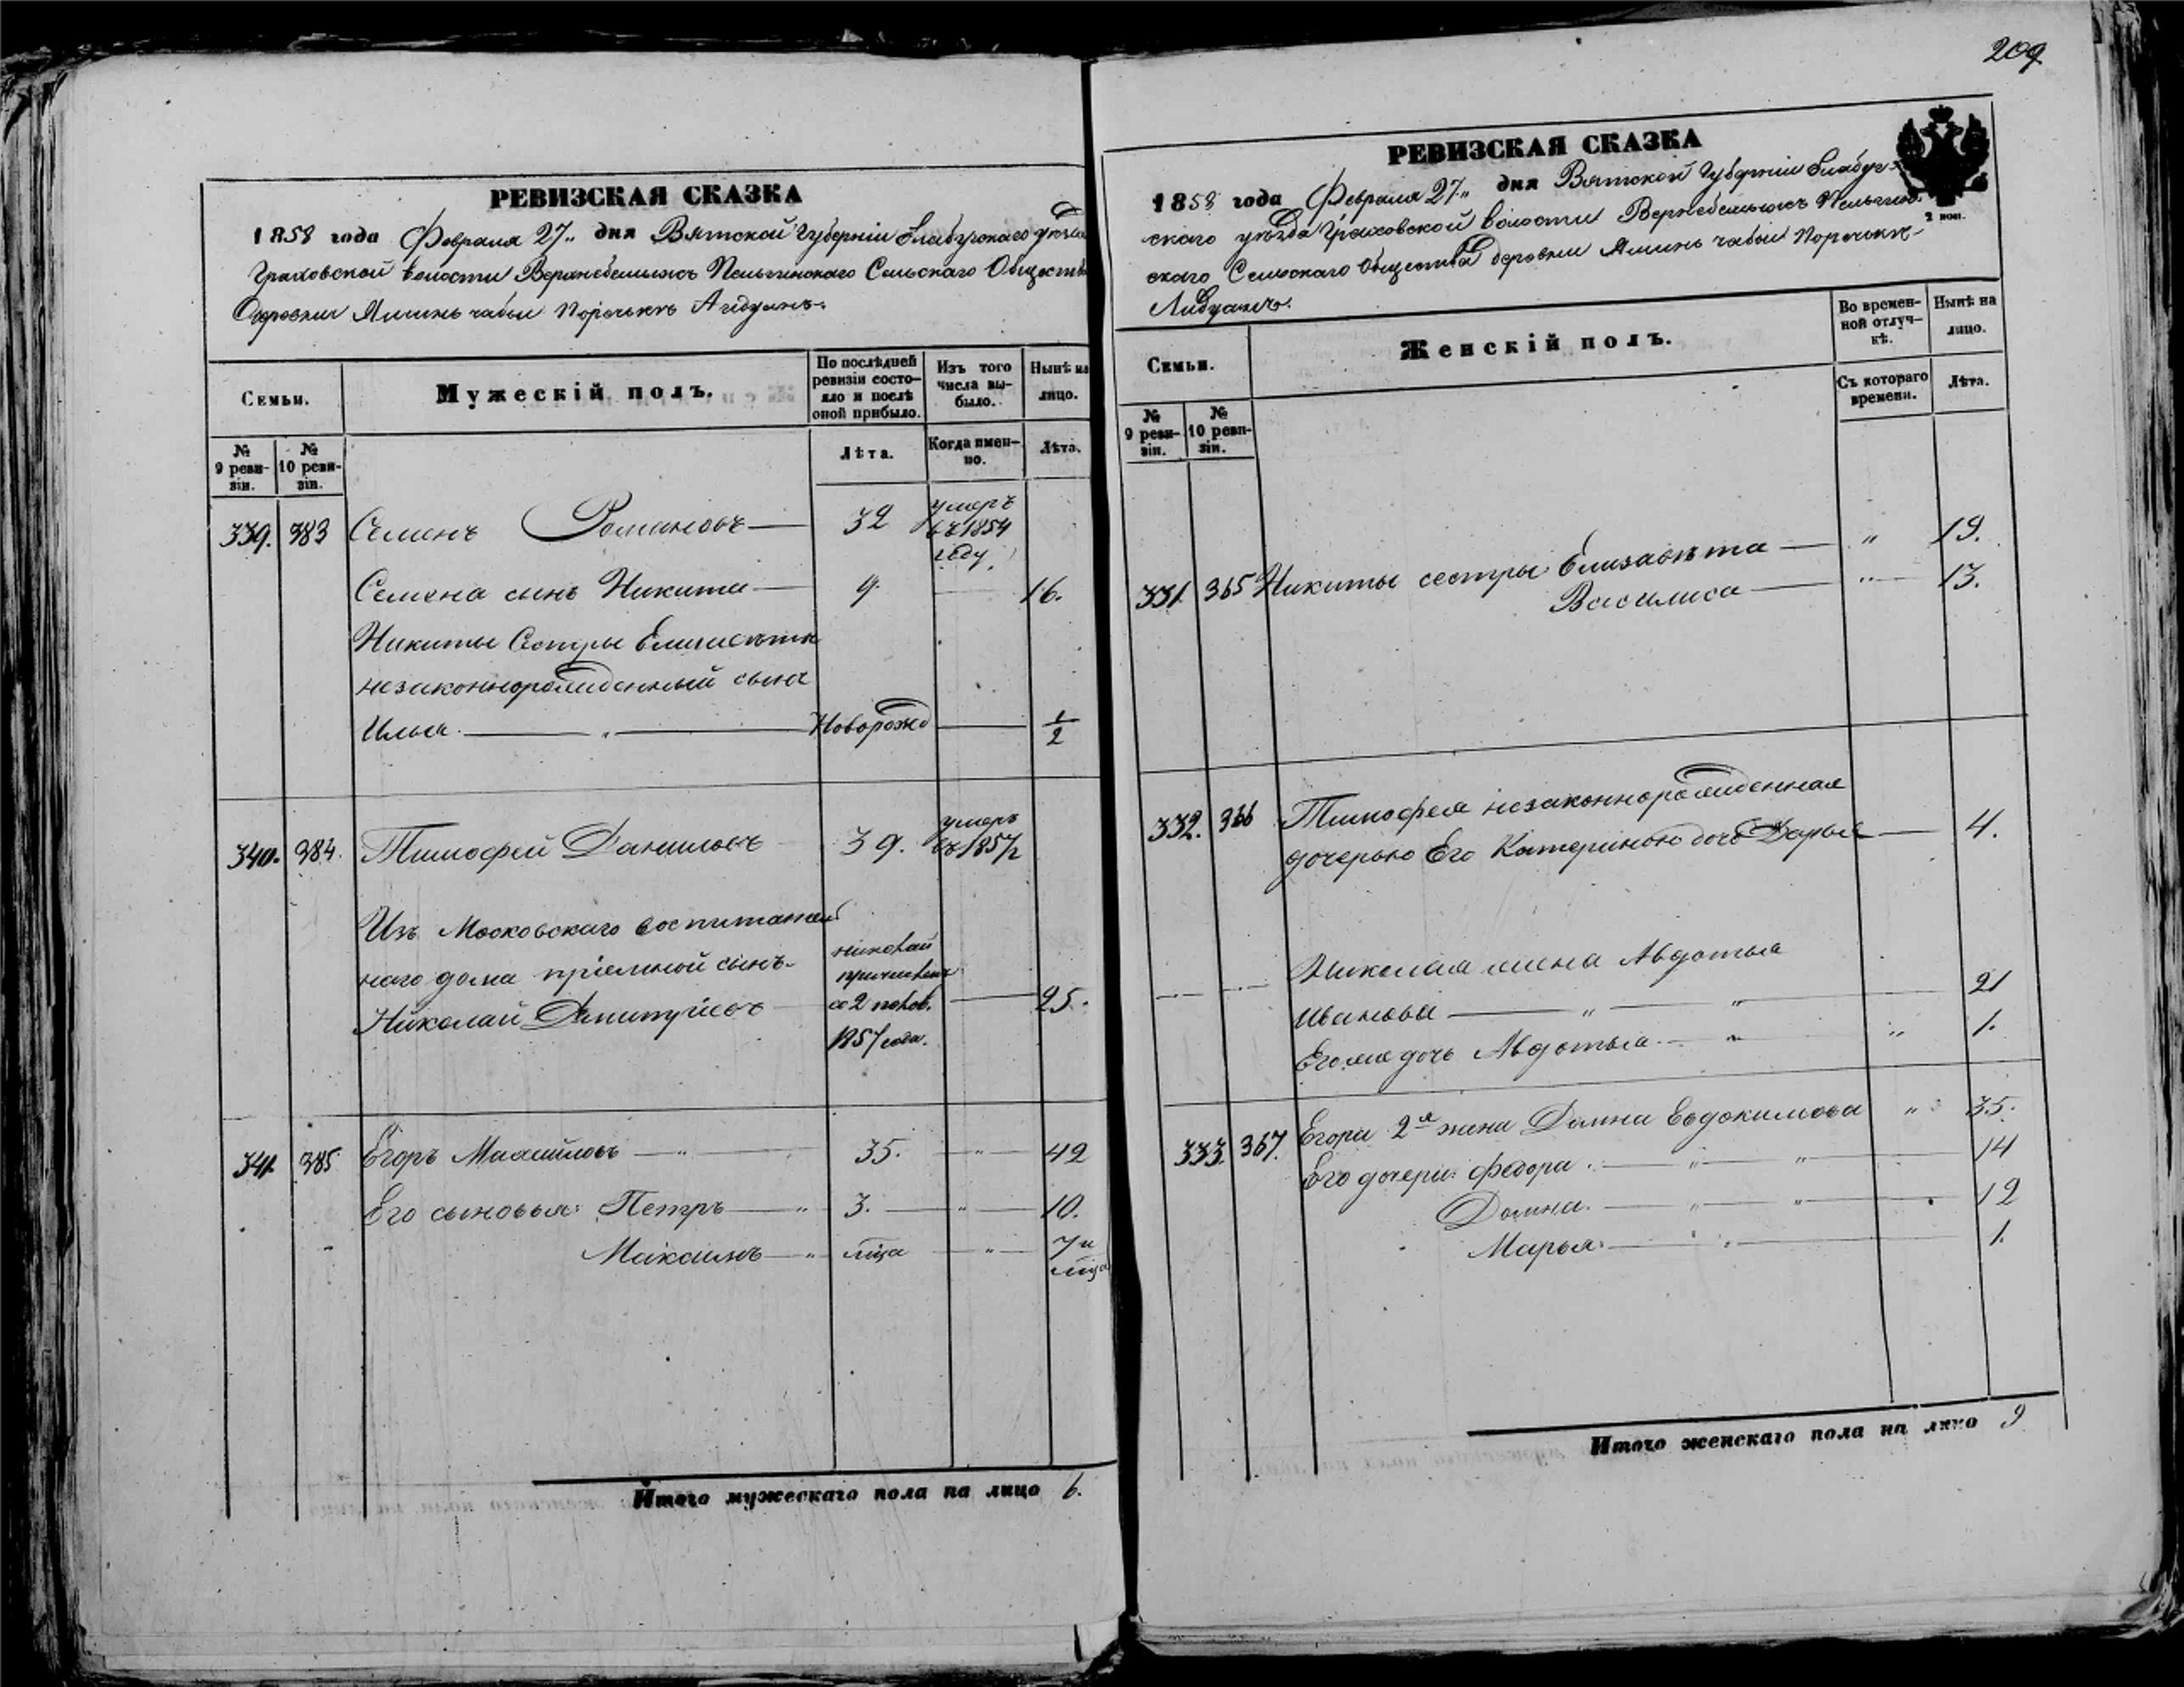 209
РЕВИЗСКАЯ СКАЗКА
1858 года Февраля 27„ дня Вятской Губерніи Елабугскаго уѣзда
Граховской волости Сельскаго Обществ
Деревни порочькъ
Семьи.
Мужескій полъ.
По послѣдней ревизіи состо-
яло и послѣ
оной прибыло.
Изъ того
числа вы-
было.
Нынѣ на
лицо.
№
9 реви-
зіи.
№
10 реви-
зіи.
Лѣта.
Когда имен-
но.
Лѣта.
339. 383 Семенъ Романовъ — 32 умеръ
въ 1854
году
Семена сынъ Никита — 9. — 16.
Никиты Сестры Елисаветы
незаконнорожденный сынъ
Илья — „ — Новорожд — 1/2
340. 384. Тимофей Даниловъ 39. умеръ
въ 185
Изъ Московскаго воспитатель
наго дома пріемной сынъ
Николай причисленъ
со 2 полов. — 25.
1857 года.
341. 385. Егоръ — „ — 35. — „ — 42
Его сыновья: Петръ — „ 3. — „ — 10.
Максимъ — „ мца — „ — 7 и
мца
Итого мужескаго пола на лицо 6.
РЕВИЗСКАЯ СКАЗКА
1858 года Февраля 27„ дня Вятской Губерніи Елабуг-
скаго уѣзда Граховской волости
скаго Сельскаго Общества деревни порочькъ
2 коп.
Семьи.
Женскій полъ.
Во времен-
ной отлуч-
кѣ.
Нынѣ на
лицо.
№
9 реви-
зіи.
№
10 реви-
зіи.
Съ котораго
времени.
Лѣта.
331. 365 Никиты сестры: Елизавѣта — „ 19.
Василиса — „ 13.
332. 366 Тимофея незаконнорожденная
дочерью Его Катериною дочь Дарья — 4.
Николая жена Авдотья
Иванова — „ — „ 21
Его же дочь Авдотья — „ „ 1.
333. 367. Егора 2я жена Домна Евдокимова „ 35.
Его дочери: Федора. — „ — „ — 14
Домна. — „ — „ — 12
Марья. — „ — 1.
Итого женскаго пола на лицо 9